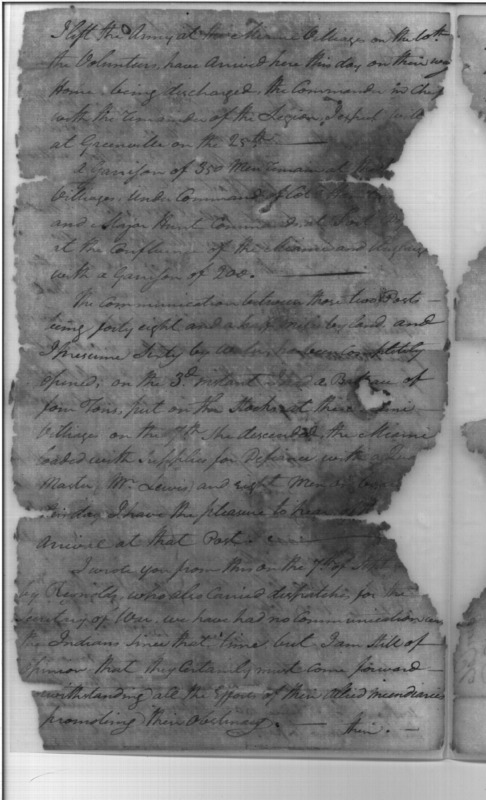 I left the Army at the Miamie Villages on the
the Volunteers, have Arrived here this day on their way
Home being discharged, the Commander in Chief
with the remainder of the Legion, I expect will
at Greenville on the 25th
a Garrison of 350 Men Remain at
Villages, Under Command of Colo.
and Major Hunt Commands at
at the Confluence of the Miamie and
with a Garrison of 200.
The communication between those two Posts
being forty eight and a half Miles by land and
I presume Sixty by Water, has been Completely
opened; on the 3d instant I had a Batteau of
four Tons, put on the Stocks at the
Villages on the 7th she descended the Miamie
loaded with supplies for Defiance with a
Master, Mr. Lewis, and Eight Men on
day I have the pleasure to hear
arrival at that Post
I wrote you from this on the 7th of
by Reynolds, who also Carried dispatches for the
Secretary of War, we have had no Communication
the Indians Since that time but I am Still of
Opinion that they Certainly must come forward
withstanding all the Efforts of their Allied incendiaries
promoting their Obstinacy. — their —